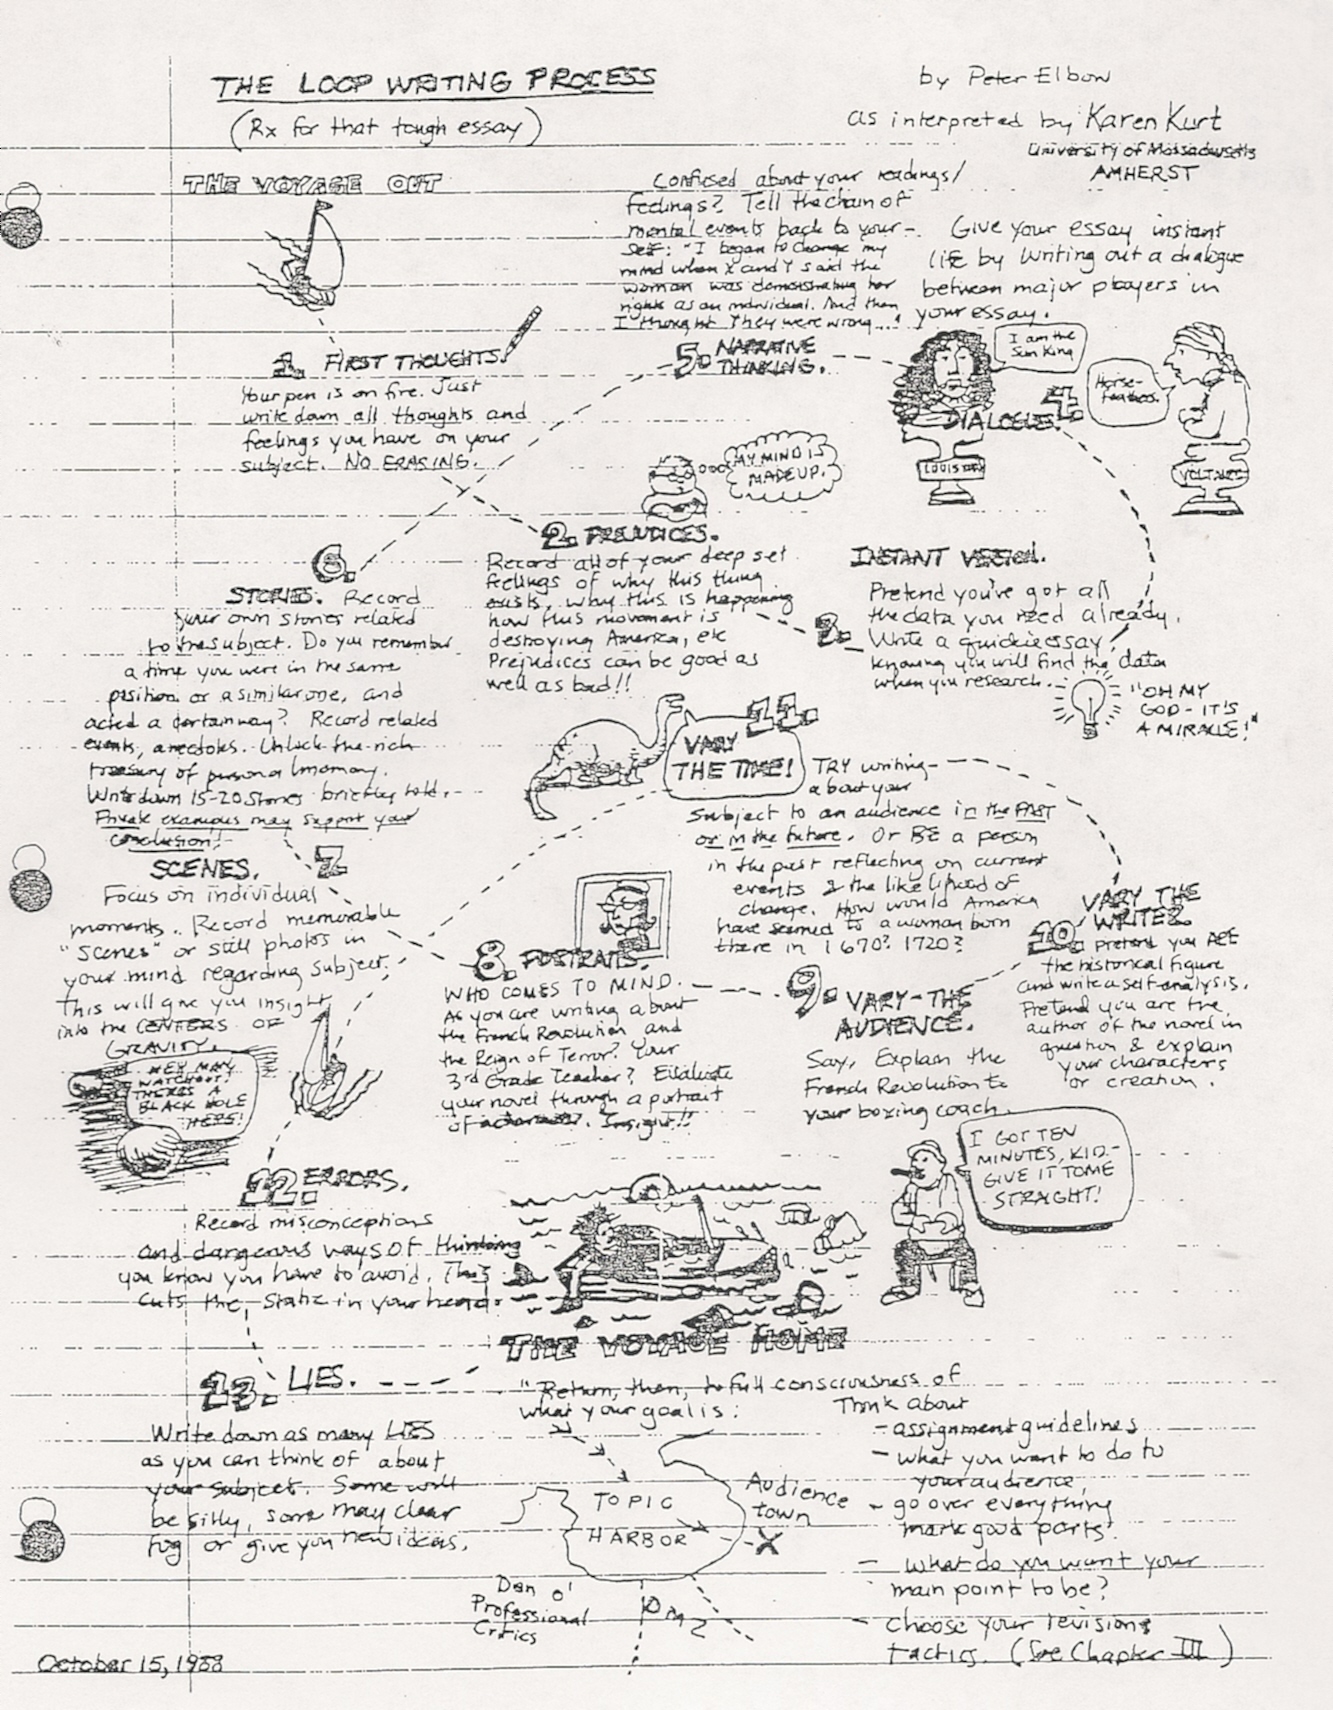 THE LOOP WRITING PROCESS
(Rx for that tough essay)
by Peter Elbow
as interpreted by Karen Kurt
University of Massachusetts
AMHERST
THE VOYAGE OUT
1. FIRST THOUGHTS.
Your pen is on fire. Just
write down all thoughts and
feelings you have on your
subject. NO ERASING.
MY MIND IS
MADE UP.
2. PREJUDICES.
Record all of your deep set
feelings of why this thing
exists, why this is happening
how this movement is
destroying America, etc
Prejudices can be good as
well as bad!!
3. INSTANT VERSION.
Pretend you've got all
the data you need already.
Write a quickie essay,
knowing you will find the data
when you research.
"OH MY
GOD - IT'S
A MIRACLE!"
Give your essay instant
life by writing out a dialogue
between major players in
your essay.
I am the
Sun King
Horse-
feathers.
4. DIALOGUE.
LOUIS XIV
VOLTAIRE
Confused about your readings/
feelings? Tell the chain of
mental events back to your-
self: "I began to change my
mind when X and Y said the
woman was demonstrating her
rights as an individual. And then
I thought they were wrong..."
5. NARRATIVE
THINKING.
6.
STORIES. Record
your own stories related
to the subject. Do you remember
a time you were in the same
position or a similar one, and
acted a certain way? Record related
events, anecdotes. Unlock the rich
treasury of personal memory.
Write down 15-20 stories briefly told.
Private examples may support your
conclusion!
7.
SCENES.
Focus on individual
moments. Record memorable
"scenes" or still photos in
your mind regarding subject.
This will give you insight
into the CENTERS OF
GRAVITY.
HEY MAN
WATCHOUT!
THERES A
BLACK HOLE
HERE!
8. PORTRAITS.
WHO COMES TO MIND.
As you are writing about
the French Revolution and
the Reign of Terror? Your
3rd Grade Teacher? Evaluate
your novel through a portrait
of a character. Insight!!
9. VARY THE
AUDIENCE.
Say, Explain the
French Revolution to
your boxing coach.
I GOT TEN
MINUTES, KID-
GIVE IT TO ME
STRAIGHT!
10. VARY THE
WRITER.
Pretend you ARE
the historical figure
and write a self-analysis.
Pretend you are the
author of the novel in
question & explain
your characters
or creation.
11.
VARY
THE TIME!
TRY writing
about your
subject to an audience in the PAST
or in the future. Or BE a person
in the past reflecting on current
events & the likelihood of
change. How would America
have seemed to a woman born
there in 1670? 1720?
12. ERRORS.
Record misconceptions
and dangerous ways of thinking
you know you have to avoid. This
cuts the static in your head.
13. LIES.
Write down as many LIES
as you can think of about
your subject. Some will
be silly, some may clear
fog or give you new ideas.
THE VOYAGE HOME
"Return, then, to full consciousness of
what your goal is:
Think about
- assignment guidelines
- what you want to do to
your audience,
- go over everything
mark good parts.
- what do you want your
main point to be?
- choose your revisions
tactics. (See Chapter III)
TOPIC
HARBOR
Audience
town
X
Den o'
Professional
Critics
October 15, 1988